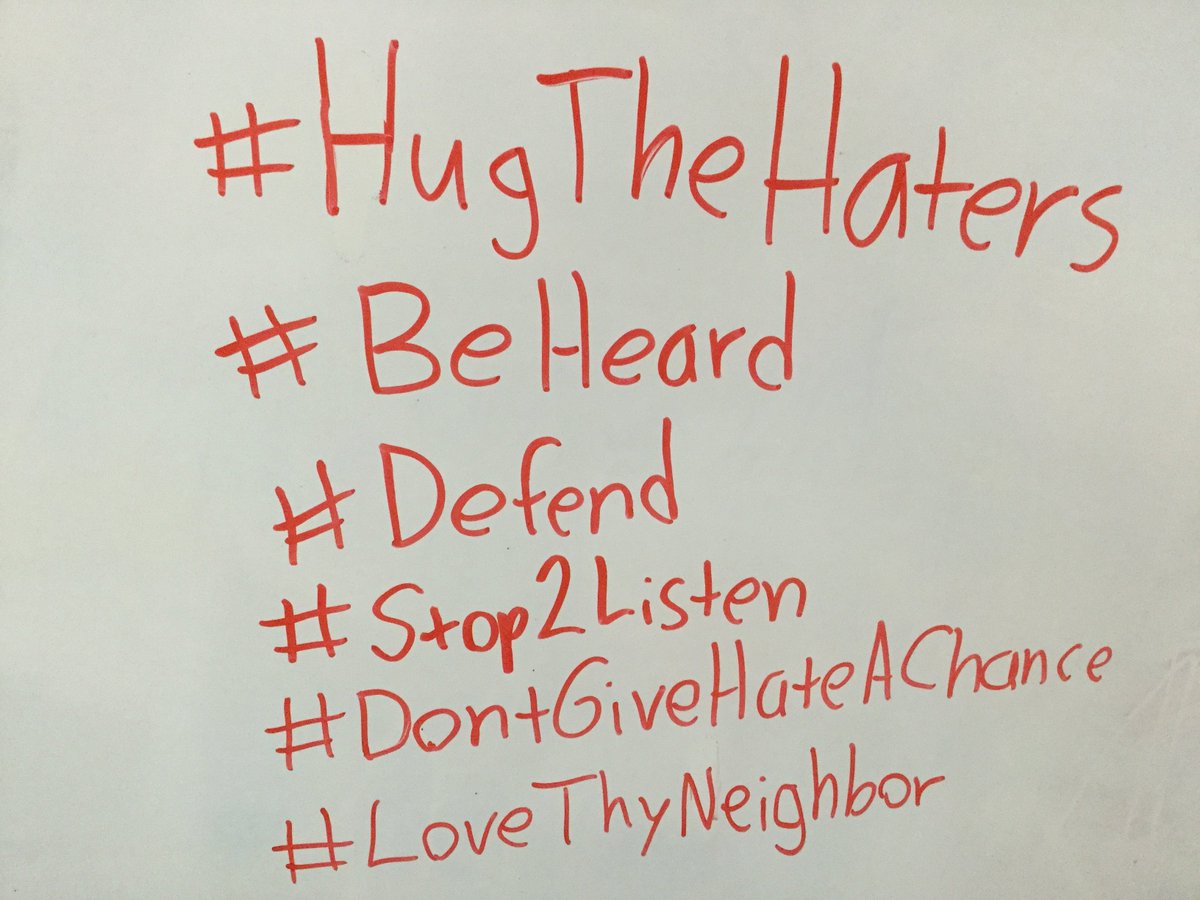 #HugTheHaters
#BeHeard
#Defend
#Stop2Listen
#DontGiveHateAChance
#LoveThyNeighbor